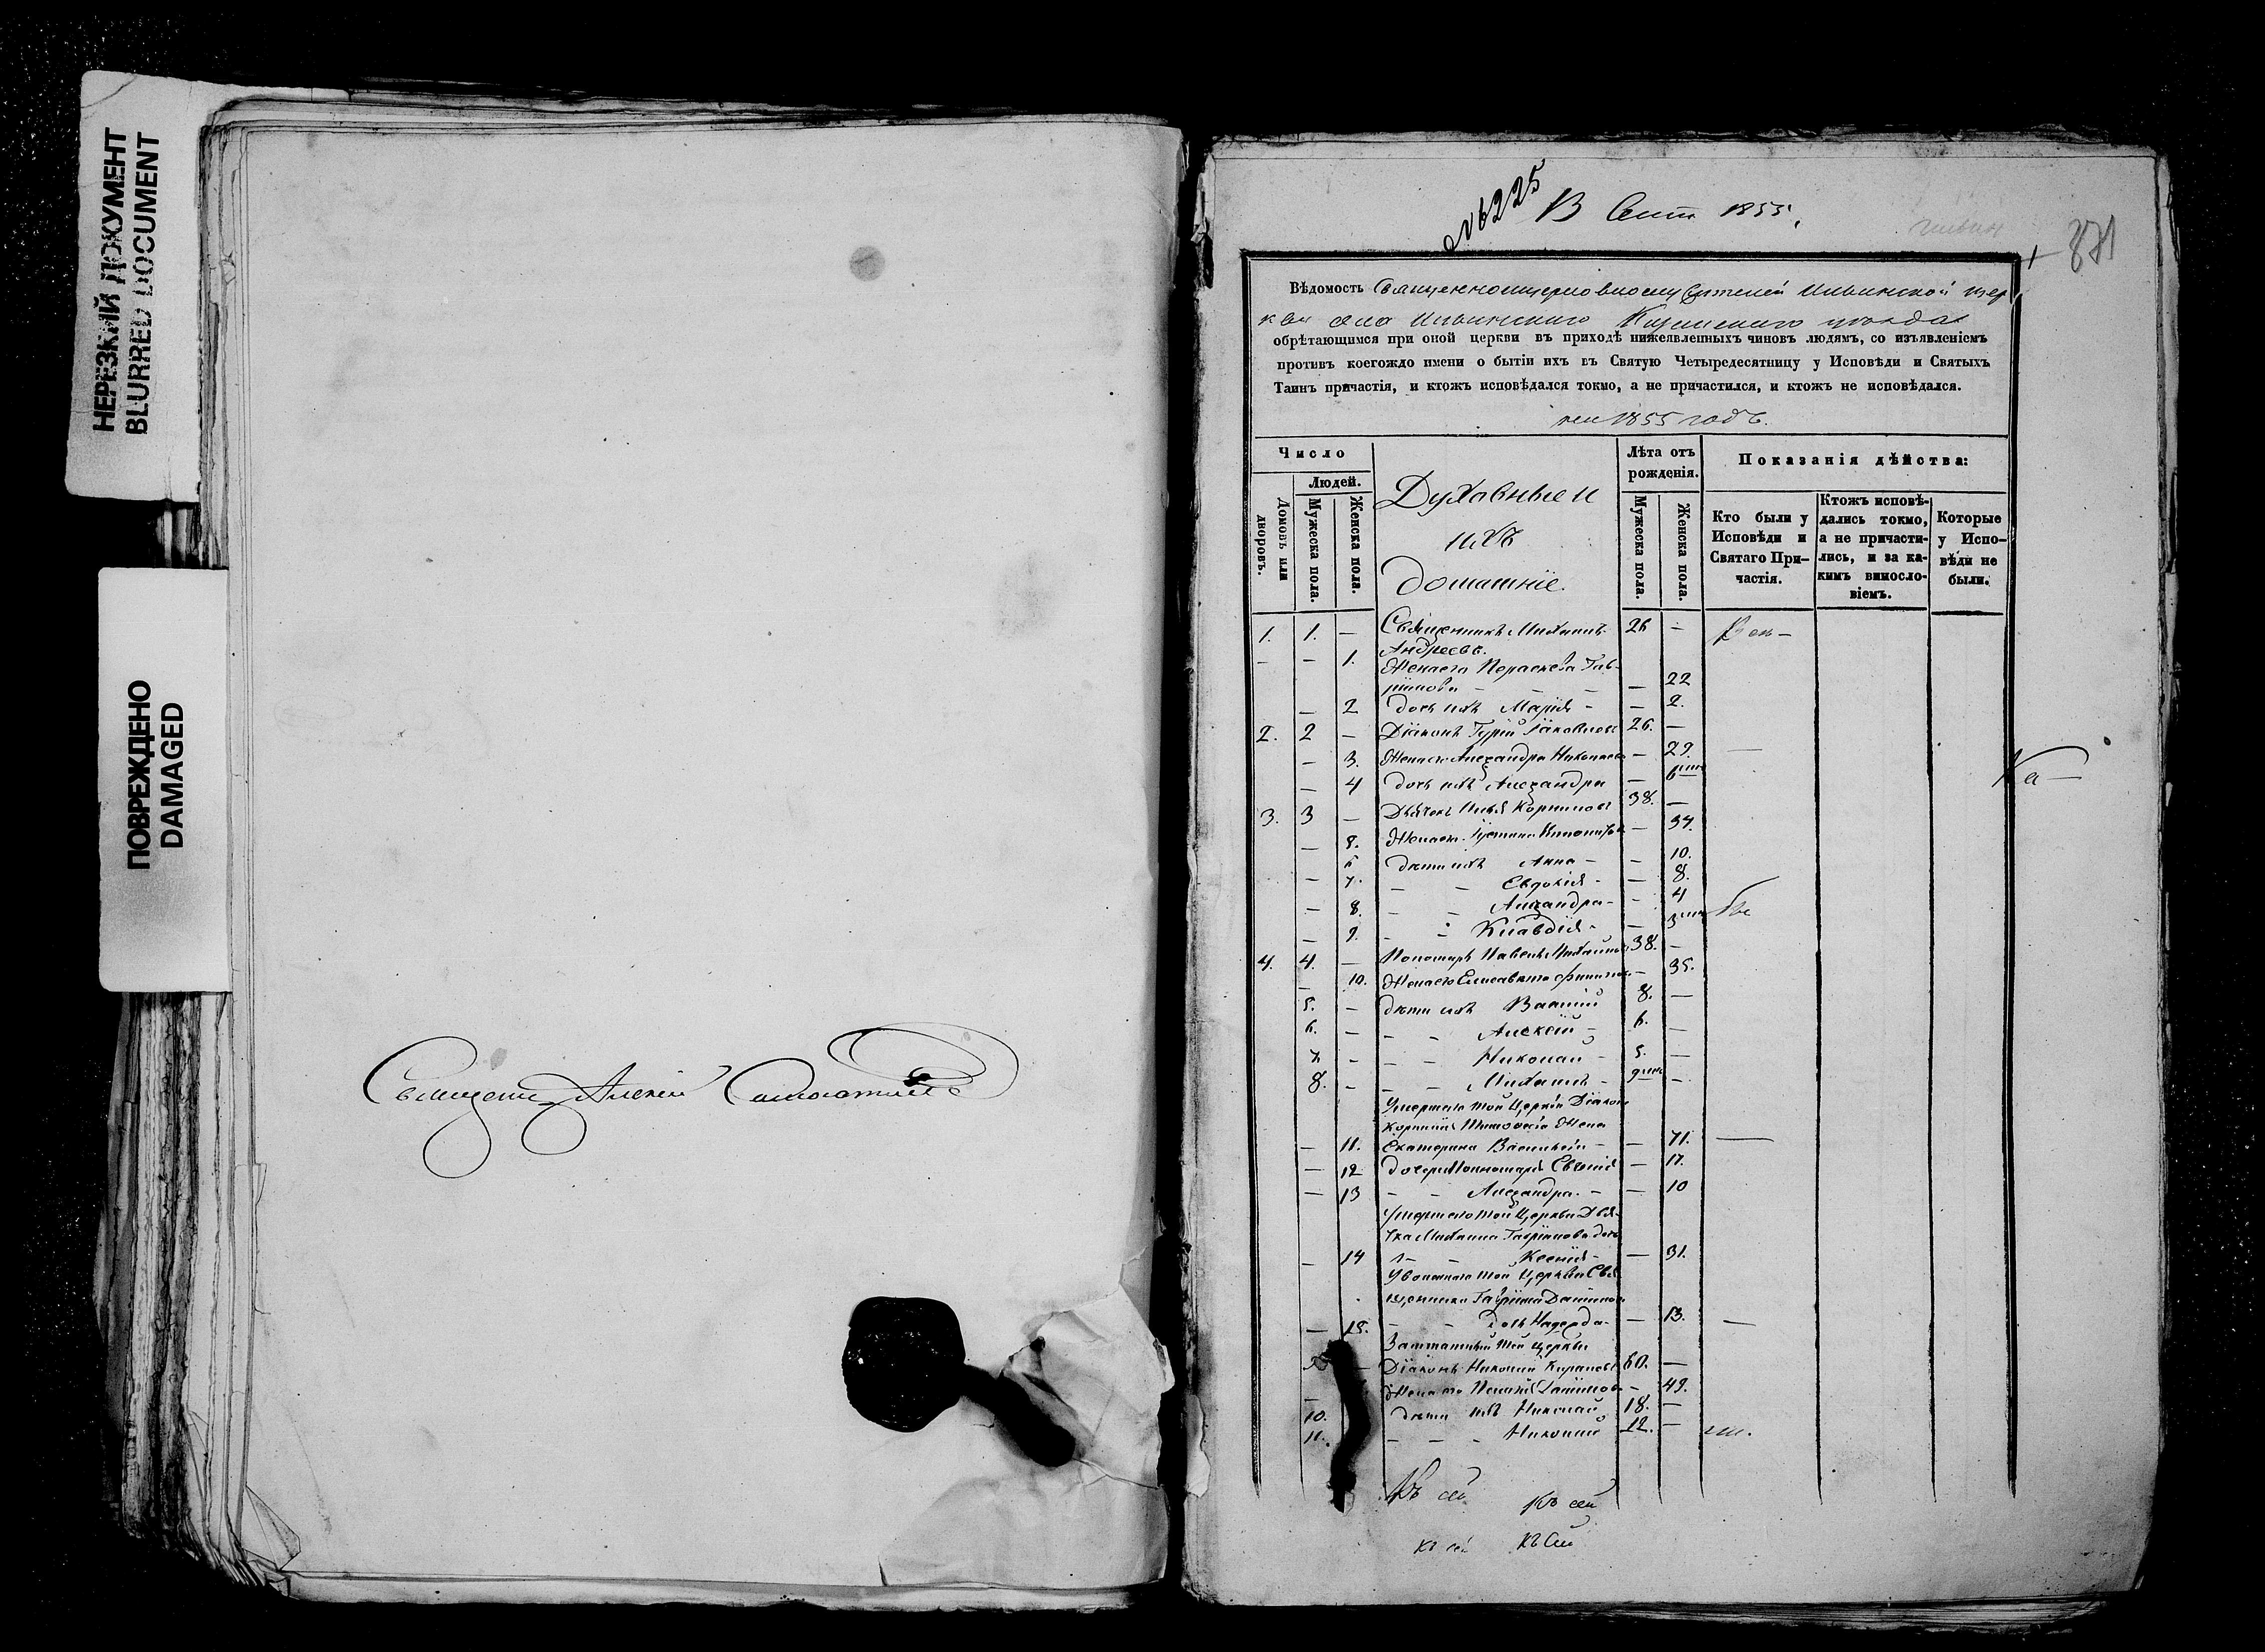 НЕРЕЗКИЙ ДОКУМЕНТ
BLURRED DOCUMENT
ПОВРЕЖДЕНО
DAMAGED
Священ Алексій
№ 225
В Сент 1855.
871
Вѣдомость Священноцерковнослужителей Ильинской цер
кви села Ильинскаго уѣзда
обрѣтающимся при оной церкви въ приходѣ нижеявленныхъ чиновъ людямъ, со изъявленіемъ
противъ коегождо имени о бытіи ихъ въ Святую Четыредесятницу у Исповѣди и Святыхъ
Таинъ причастія, и ктожъ исповѣдался токмо, а не причастился, и ктожъ не исповѣдался.
1855 годъ.
Число
Людей.
Домовъ или дворовъ.
Мужеска пола.
Женска пола.
Духовные и
ихъ
домашніе.
Лѣта отъ рожденія.
Мужеска пола.
Женска пола.
Показанія дѣйства:
Кто были у Исповѣди и Святаго Причастія.
Ктожъ исповѣдались токмо, а не причастились, и за какимъ винословіемъ.
Которые у Исповѣди не были.
1. 1. — Священникъ Михаилъ 26 —
Андреевъ.
— — 1. Жена его Параскева Гав-
рилова — 22
— 2 дочь ихъ Марія — — 2.
2. 2 — Діаконъ Гурій Іаковлевъ 26. —
— 3. Жена его Александра Николаева — 22.
— 4 дочь ихъ Александра — 6
3. 3 — Дьячекъ Илья Корниловъ 38. —
— 5. Жена его — 37.
6 дѣти ихъ Анна — — 10.
— 7. — — Евдокія — — 8.
— 8. — — Александра — — 4
— 9. — — Клавдія — — 3
4. 4. — Пономарь Павелъ Михайловъ 38. —
— 10. Жена его Елисавета Филипова — 35.
5. — дѣти ихъ Василій 8. —
6. — — — Алексій — 6. —
7. — — — Николай — 5. —
8. — — — Михаилъ — 9 —
Умершаго той Церкви Діакона
Корнилія Тимофеева Жена
— 11. Екатерина Васильева — — 71.
— 12 дочери Пономаря Евгенія — 17.
— 13 — — Александра — — 10
Умершаго той Церкви Дья-
чка Михаила Гаврилова дочь
— 14 — — Ксенія — — 31.
Уволеннаго той Церкви Свя
щенника Гавріила Данилова
— 15. — — дочь Надежда — — 13.
Заштатный той церкви
Діаконъ Николай 60. —
Жена его — 49.
10. дѣти ихъ Николай 18. —
11. — — — Николай 12. —
Къ сей
Къ сей
Къ сей
Къ сей